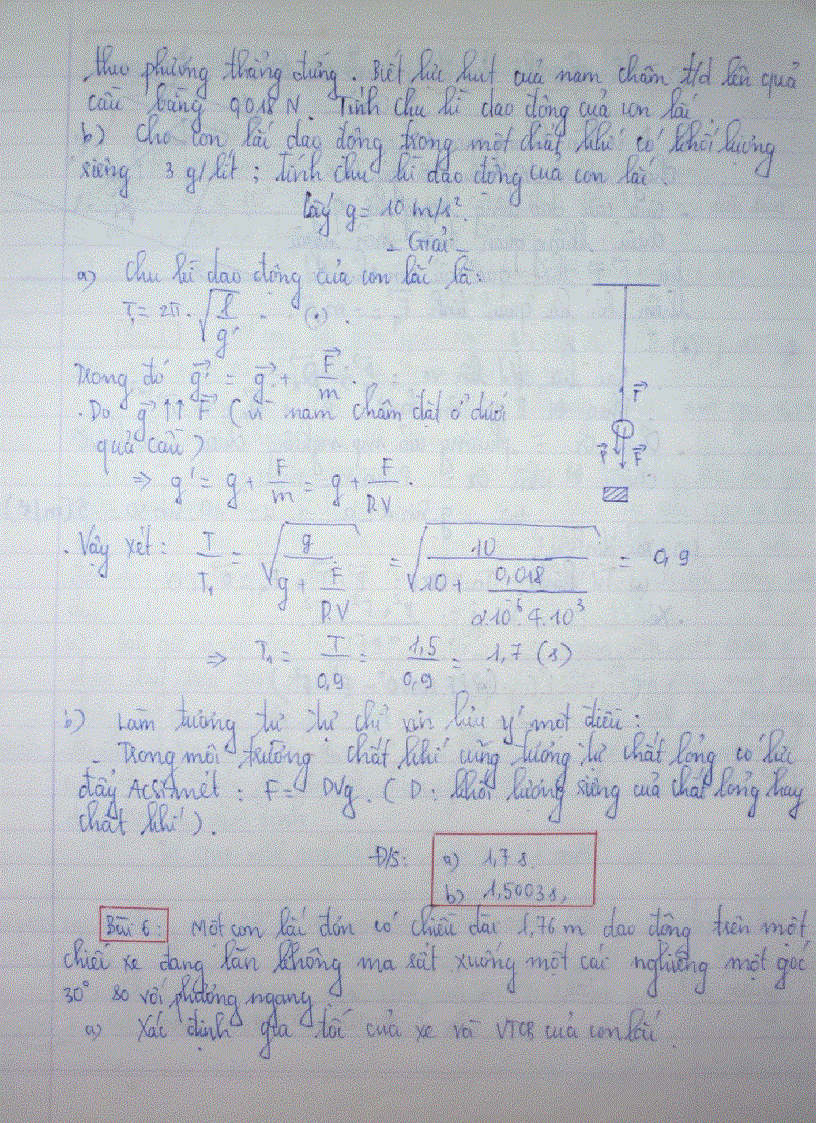 theo phương thẳng đứng. Biết lực hút của nam châm t/d lên quả
cầu bằng 0,018 N. Tính chu kì dao động của con lắc.
b) Cho con lắc dao động trong một chất khí có khối lượng
riêng 3 g/lít ; tính chu kì dao động của con lắc.
Lấy g = 10 m/s².
- Giải -
a) Chu kì dao động của con lắc là
T₁ = 2π.√(l/g') (1).
Trong đó g⃗' = g⃗ + F⃗/m.
. Do g⃗ ↑↑ F⃗ (vì nam châm đặt ở dưới
quả cầu)
⇒ g' = g + F/m = g + F/D.V.
F⃗
P⃗ F⃗
. Vậy xét: T/T₁ = √(g/(g + F/D.V)) = √(10/(10 + 0,018/(2.10⁻⁶.4.10³))) = 0,9
⇒ T₁ = T/0,9 = 1,5/0,9 = 1,7 (s)
b) Làm tương tự chỉ xin lưu ý một điều :
- Trong môi trường chất khí cũng tương tự chất lỏng có lực
đẩy Acsimét : F = DVg. (D : khối lượng riêng của chất lỏng hay
chất khí).
Đ/S: a) 1,7 s.
b) 1,5003 s.
Bài 6 : Một con lắc đơn có chiều dài 1,76 m dao động trên một
chiếc xe đang lăn không ma sát xuống một cái nghiêng một góc
30° so với phương ngang
a) Xác định gia tốc của xe và VTCB của con lắc.